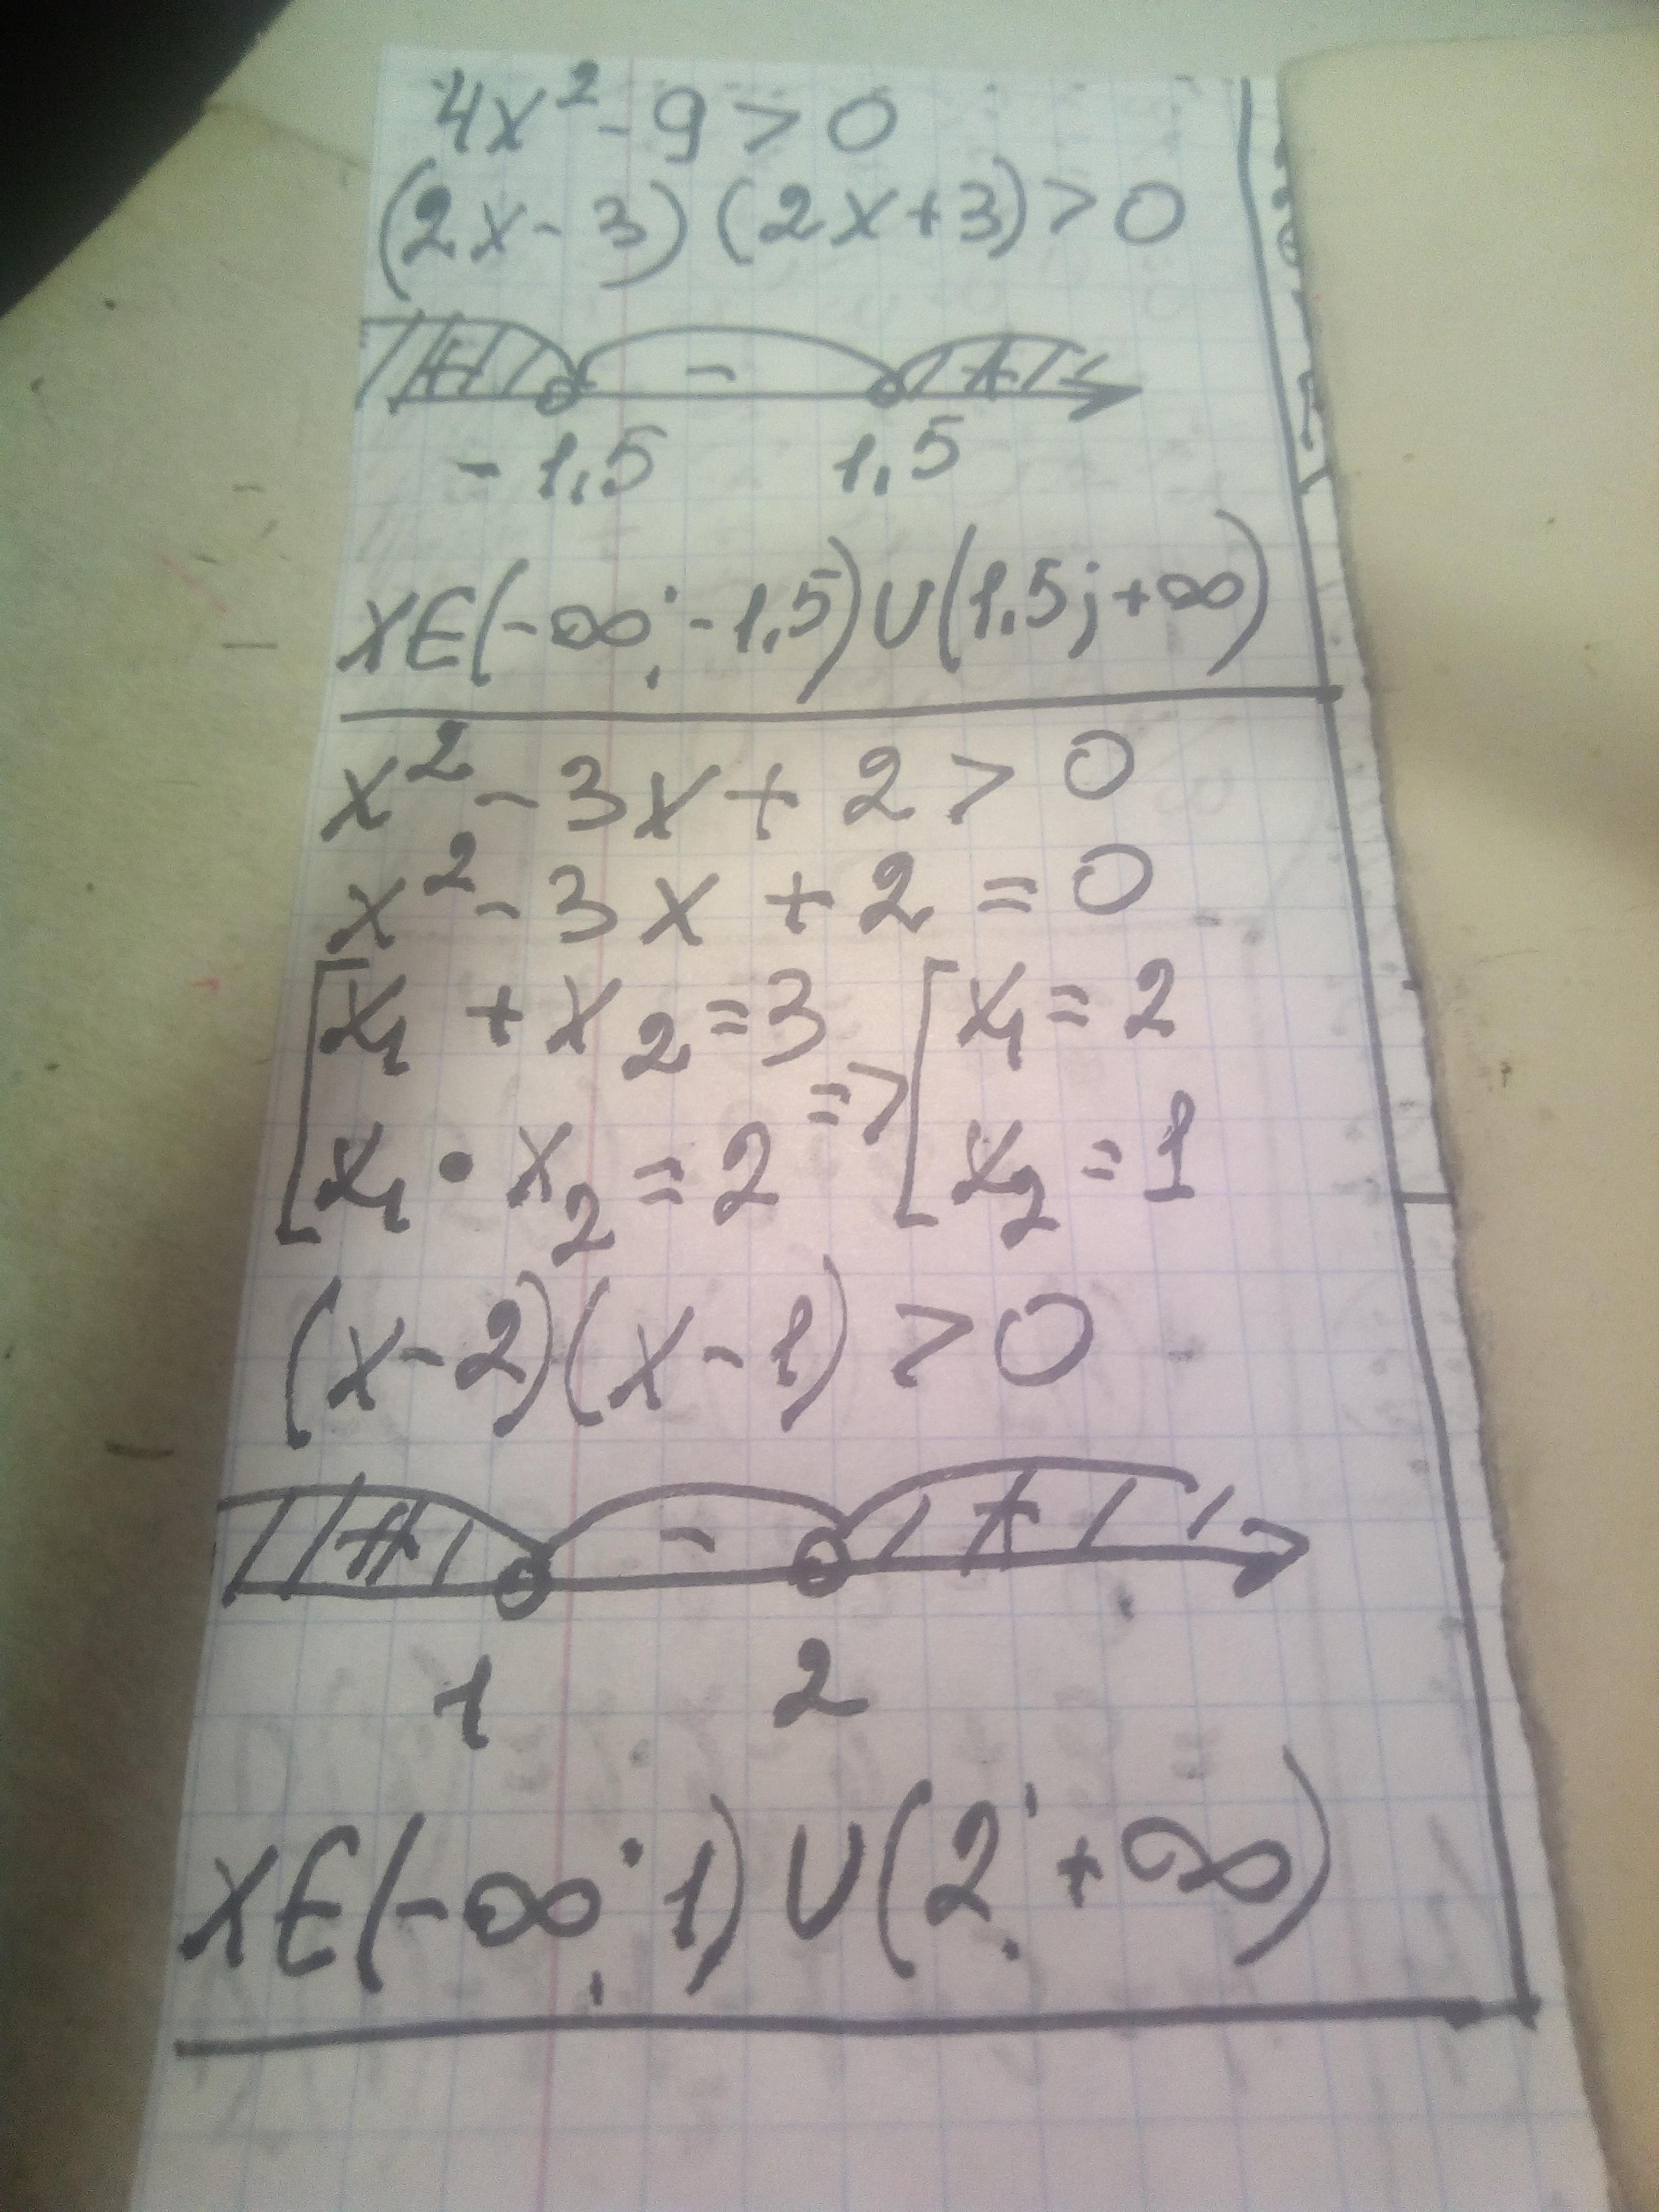 4x² - 9 > 0
(2x - 3) (2x + 3) > 0
+ - +
- 1,5 1,5
x∈(-∞; -1,5)∪(1,5; +∞)
x² - 3x + 2 > 0
x² - 3x + 2 = 0
[x₁ + x₂ = 3 => [x₁ = 2
x₁ • x₂ = 2 x₂ = 1
(x - 2)(x - 1) > 0
+ - +
1 2
x∈(-∞; 1)∪(2; +∞)